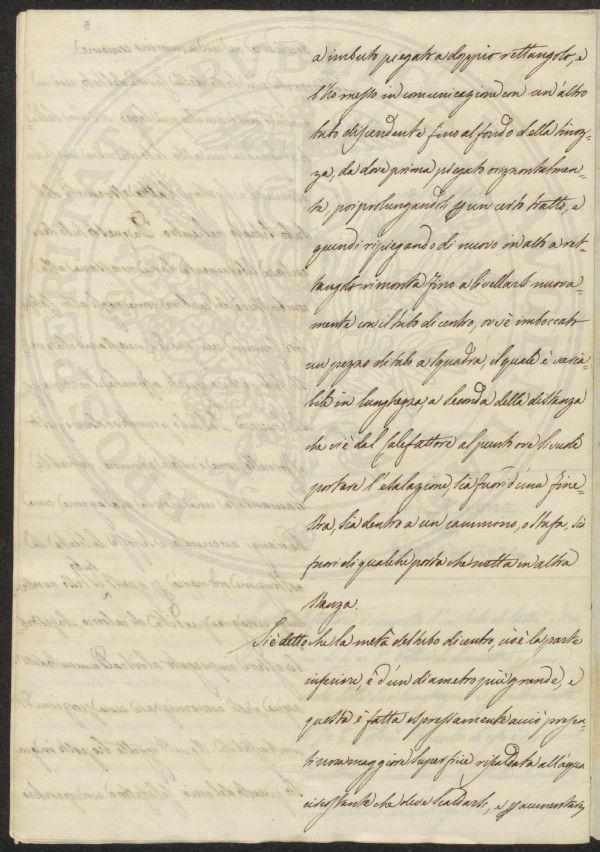 a imbuto piegato a doppio rettangolo, e
l'ho messo in comunicazione con un'altro
tubo discendente fino al fondo della tinoz=
za, da dove prima piegato orizzontalmen=
te, poi prolungandosi p un certo tratto, e
quindi ripiegando di nuovo in alto a ret=
tangolo rimonta fino a livellarsi nuova=
mente con il tubo di centro, ov'è imboccato
un pezzo di tubo a squadra, il quale è varia=
bile in lunghezza, a seconda della distanza
che vi è dal Calefattore al punto ove si vuole
portare l'esalazione, sia fuori d'una fine=
stra, sia dentro a un cammino, o stufa, sia
fuori di qualche porta che metta in altra
stanza.
Si è detto che la metà del tubo di centro, cioè la parte
inferiore, è d'un diametro più grande, e
questa è fatta espressamente acciò presen=
ti una maggiore superficie riscaldata all'acqua
esistente che deve scaldarsi, e p aumentare